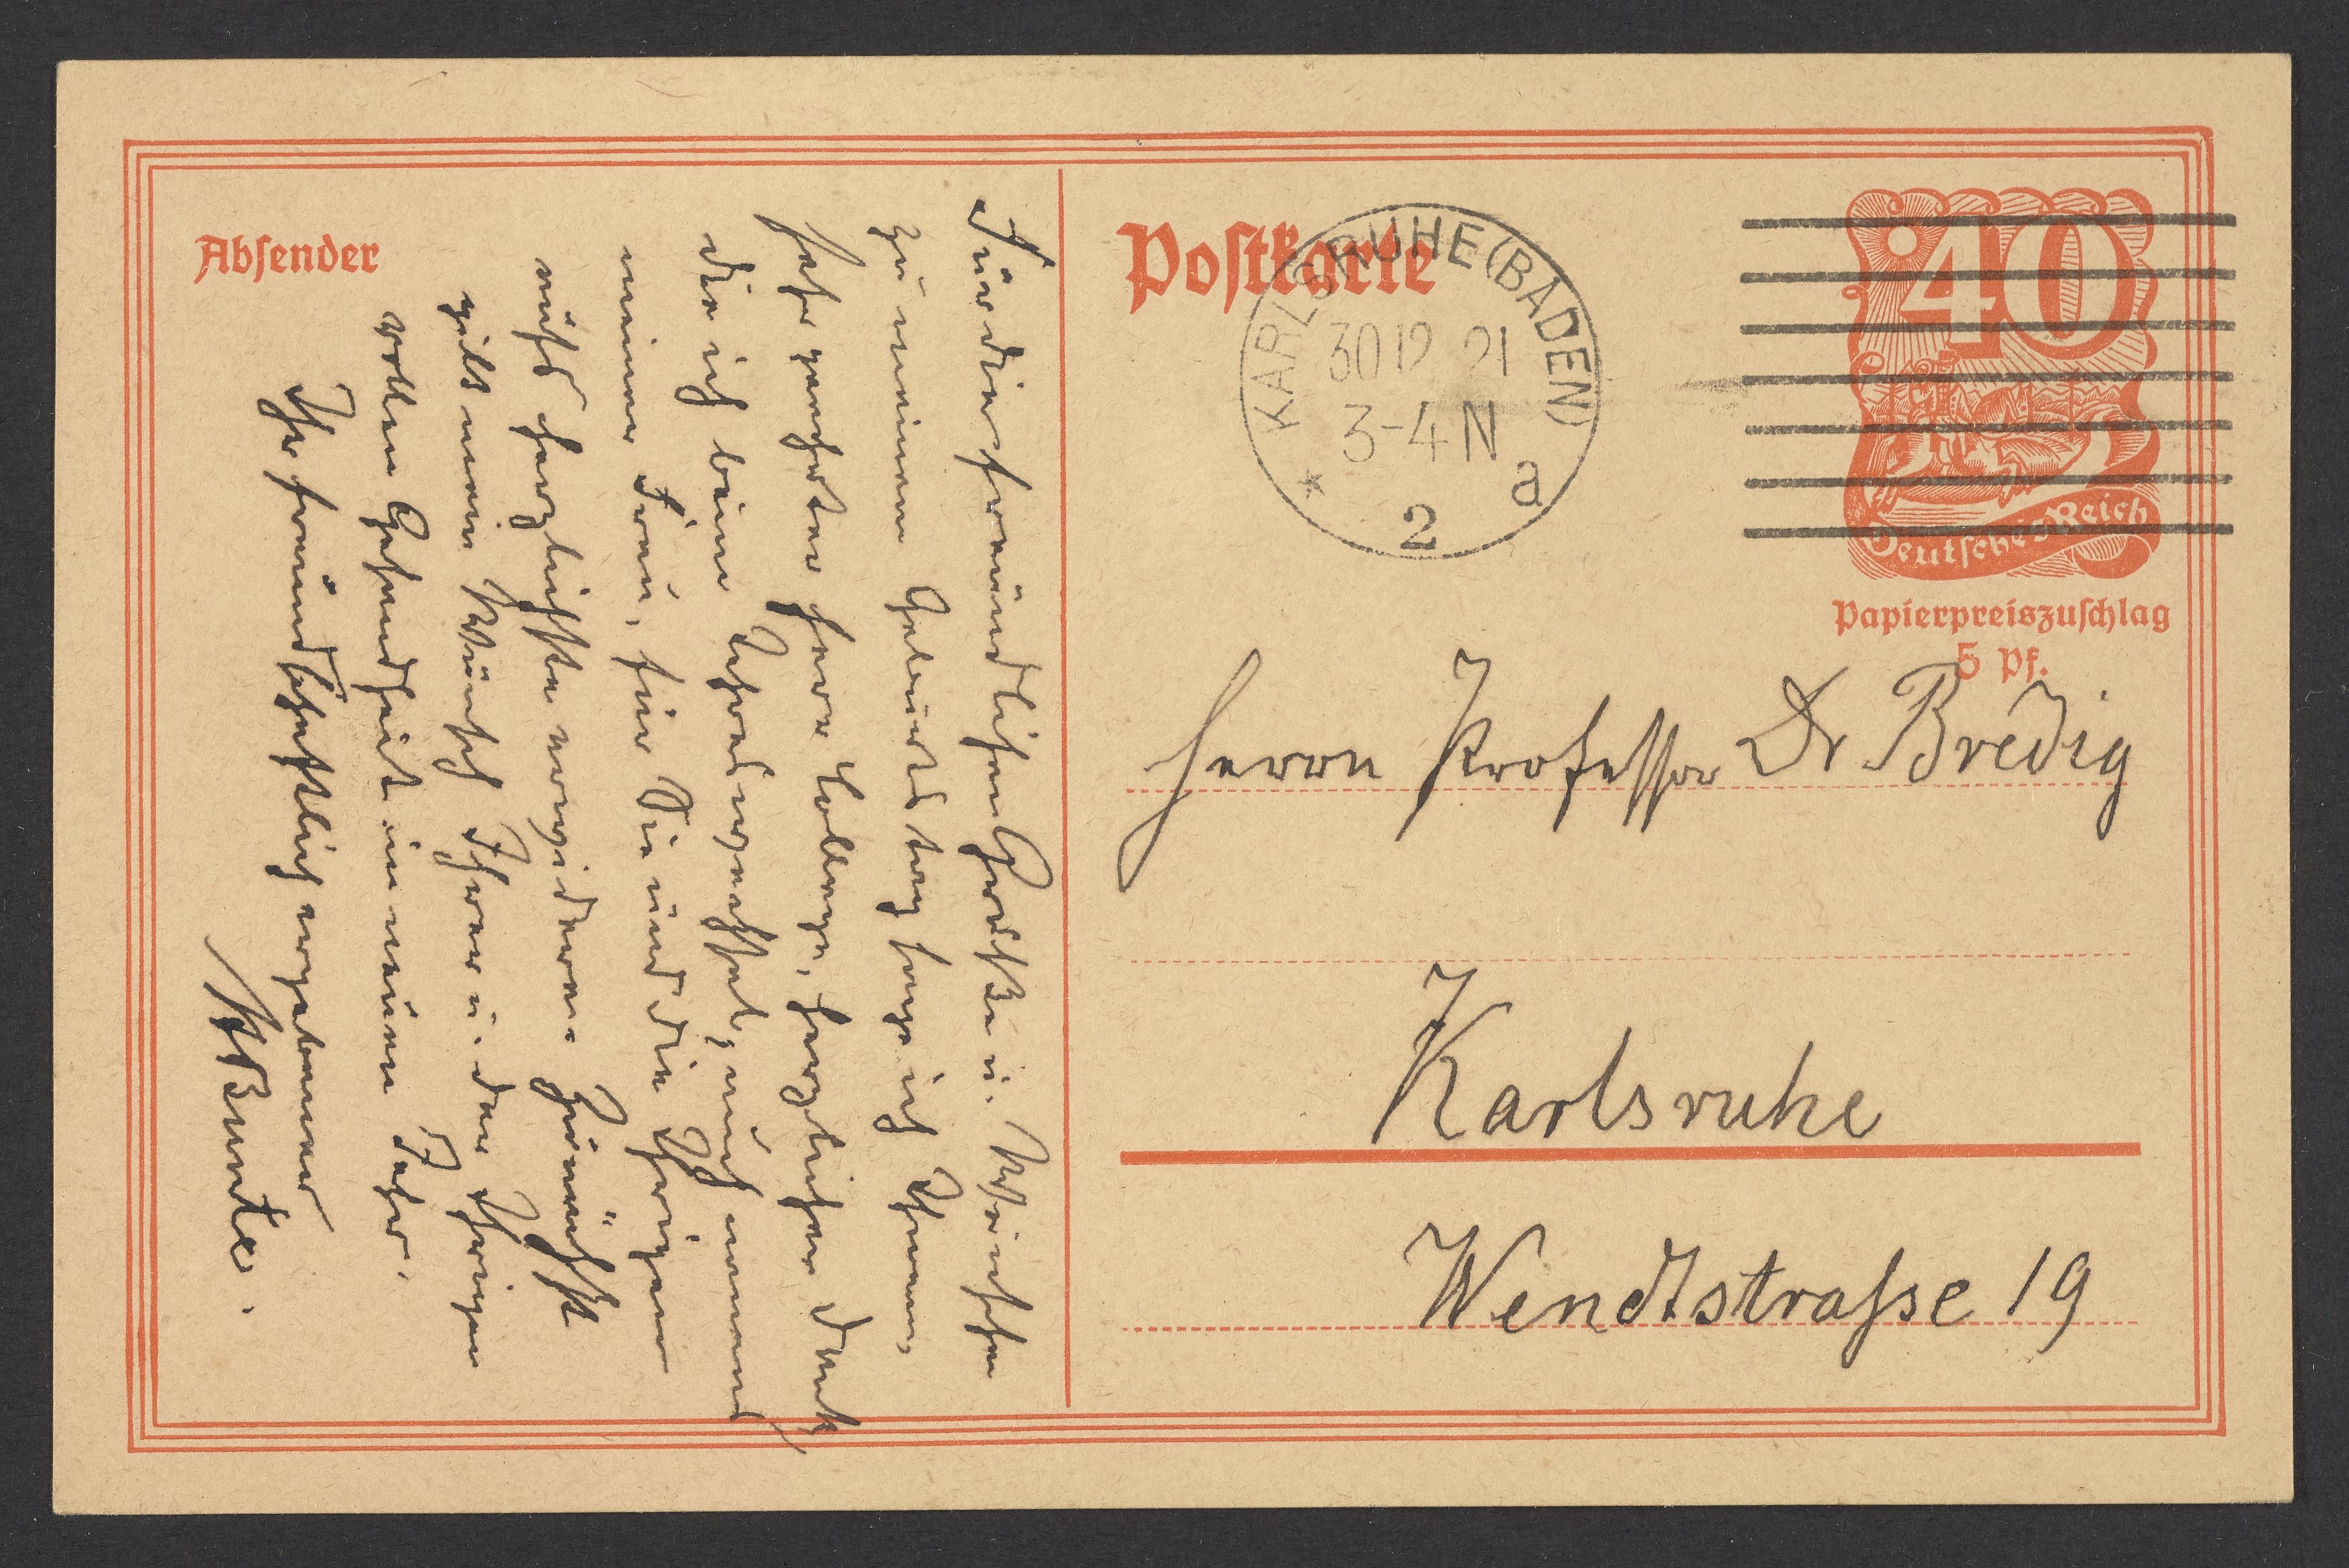 Absender
Für die freundlichen Grüße u. Wünsche
zu meinem Geburtstag sage ich Ihnen,
sehr geehrter Herr College, herzlichen Dank
die ich beim
meiner Frau, für Sie und die Ihrigen
aufs herzlichste erwidere. Zunächst
gilt mein Wunsch Ihrer u. der Ihrigen
vollen Gesundheit im neuen Jahr.
Ihr freundschaftlich ergebener
HBunte.
Postkarte
KARLSRUHE (BADEN)
30 12 21
3-4 N
* 2 a
40
Deutsches Reich
Papierpreiszuschlag
5 Pf.
Herrn Professor Dr Bredig
Karlsruhe
Wendtstrasse 19